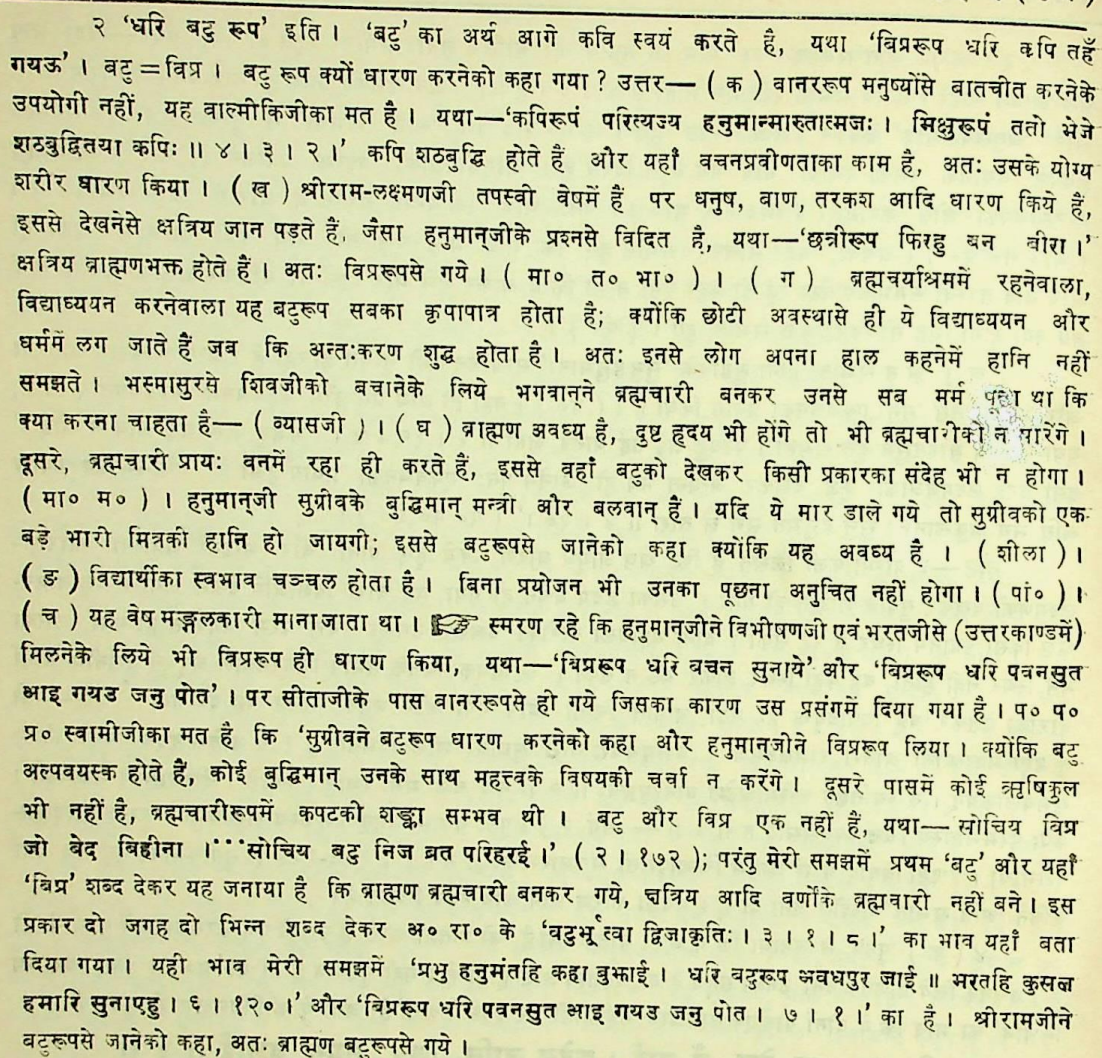 २ ‘धरि बटु रूप’ इति । ‘बटु’ का अर्थ आगे कवि स्वयं करते है, यथा ‘विप्ररूप धरि कपि तहँ
गयऊ’ । बटु = विप्र । बटु रूप क्यों धारण करनेको कहा गया ? उत्तर— ( क ) वानररूप मनुष्योंसे बातचीत करनेके
उपयोगी नहीं, यह वाल्मीकिजीका मत है । यथा—‘कपिरूपं परित्यज्य हनुमान्मारुतात्मजः । भिक्षुरूपं ततो भेजे
शठबुद्धितया कपिः ॥ ४ । ३ । २ ।’ कपि शठबुद्धि होते हैं और यहाँ वचनप्रवीणताका काम है, अतः उसके योग्य
शरीर धारण किया । ( ख ) श्रीराम-लक्ष्मणजी तपस्वी वेषमें हैं पर धनुष, बाण, तरकश आदि धारण किये हैं,
इससे देखनेसे क्षत्रिय जान पड़ते हैं, जैसा हनुमान्‌जीके प्रश्नसे विदित है, यथा—‘छत्रीरूप फिरहु बन बीरा ।’
क्षत्रिय ब्राह्मणभक्त होते हैं । अतः विप्ररूपसे गये । ( मा० त० भा० ) । ( ग ) ब्रह्मचर्याश्रममें रहनेवाला,
विद्याध्ययन करनेवाला यह बटुरूप सबका कृपापात्र होता है; क्योंकि छोटी अवस्थासे ही ये विद्याध्ययन और
धर्ममें लग जाते हैं जब कि अन्तःकरण शुद्ध होता है । अतः इनसे लोग अपना हाल कहनेमें हानि नहीं
समझते । भस्मासुरसे शिवजीको बचानेके लिये भगवान्‌ने ब्रह्मचारी बनकर उनसे सब मर्म पूछा था कि
क्या करना चाहता है— ( व्यासजी ) । ( घ ) ब्राह्मण अवध्य है, दुष्ट हृदय भी होंगे तो भी ब्रह्मचारीको न मारेंगे ।
दूसरे, ब्रह्मचारी प्रायः वनमें रहा ही करते हैं, इससे वहाँ बटुको देखकर किसी प्रकारका संदेह भी न होगा ।
( मा० म० ) । हनुमान्‌जी सुग्रीवके बुद्धिमान् मन्त्री और बलवान् हैं । यदि ये मार डाले गये तो सुग्रीवको एक
बड़े भारी मित्रकी हानि हो जायगी; इससे बटुरूपसे जानेको कहा क्योंकि यह अवध्य है । ( शीला ) ।
( ङ ) विद्यार्थीका स्वभाव चञ्चल होता है । बिना प्रयोजन भी उनका पूछना अनुचित नहीं होगा । ( पां० ) ।
( च ) यह वेष मङ्गलकारी माना जाता था । ☞ स्मरण रहे कि हनुमान्‌जीने विभीषणजी एवं भरतजीसे (उत्तरकाण्डमें)
मिलनेके लिये भी विप्ररूप ही धारण किया, यथा—‘बिप्ररूप धरि बचन सुनाये’ और ‘बिप्ररूप धरि पवनसुत
आइ गयउ जनु पोत’ । पर सीताजीके पास वानररूपसे ही गये जिसका कारण उस प्रसंगमें दिया गया है । प० प०
प्र० स्वामीजीका मत है कि ‘सुग्रीवने बटुरूप धारण करनेको कहा और हनुमान्‌जीने विप्ररूप लिया । क्योंकि बटु
अल्पवयस्क होते हैं, कोई बुद्धिमान् उनके साथ महत्त्वके विषयकी चर्चा न करेंगे । दूसरे पासमें कोई ऋषिकुल
भी नहीं है, ब्रह्मचारीरूपमें कपटकी शङ्का सम्भव थी । बटु और विप्र एक नहीं हैं, यथा— सोचिय बिप्र
जो बेद बिहीना ।···सोचिय बटु निज ब्रत परिहरई ।’ ( २ । १७२ ); परंतु मेरी समझमें प्रथम ‘बटु’ और यहाँ
‘बिप्र’ शब्द देकर यह जनाया है कि ब्राह्मण ब्रह्मचारी बनकर गये, क्षत्रिय आदि वर्णोंके ब्रह्मचारी नहीं बने । इस
प्रकार दो जगह दो भिन्न शब्द देकर अ० रा० के ‘वटुर्भूत्वा द्विजाकृतिः । ३ । १ । ८ ।’ का भाव यहाँ बता
दिया गया । यही भाव मेरी समझमें ‘प्रभु हनुमंतहि कहा बुझाई । धरि बटुरूप अवधपुर जाई ॥ भरतहि कुसल
हमारि सुनाएहु । ६ । १२० ।’ और ‘बिप्ररूप धरि पवनसुत आइ गयउ जनु पोत । ७ । १ ।’ का है । श्रीरामजीने
बटुरूपसे जानेको कहा, अतः ब्राह्मण बटुरूपसे गये ।